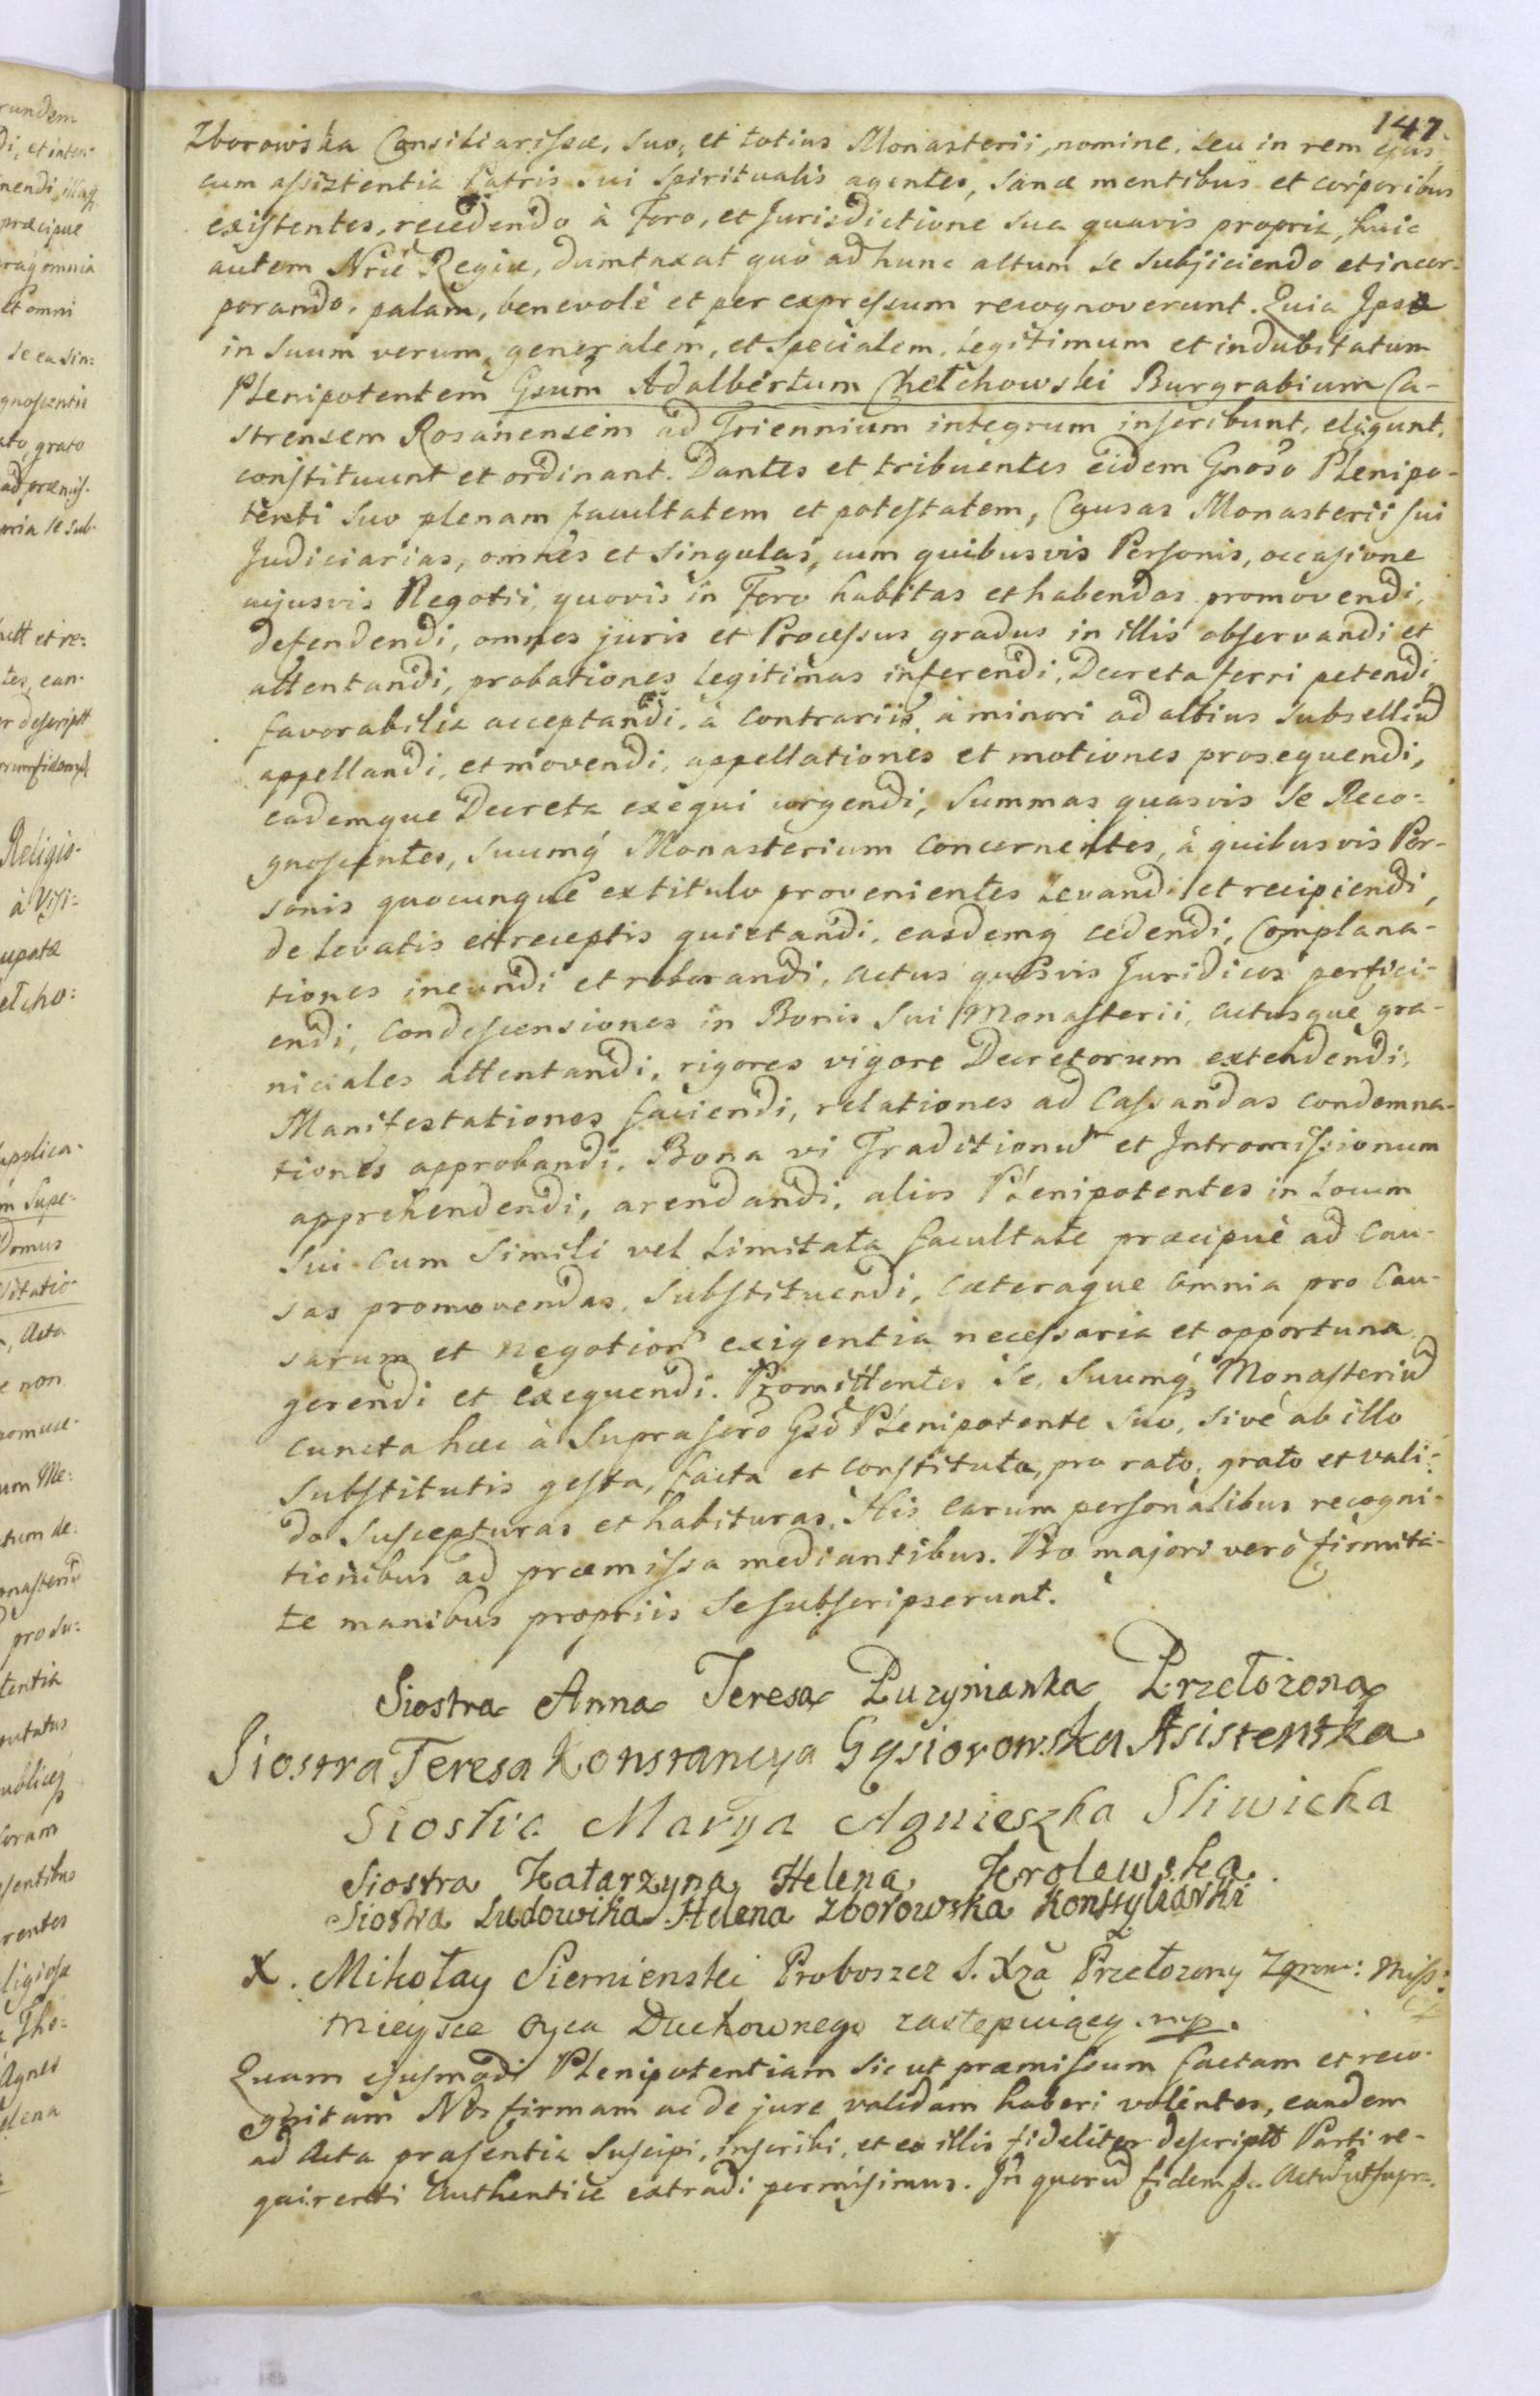 147.
Zborowska Consiliarissæ, suo, et totius Monasterii, nomine, seu in rem ejus
cum assistentia Patris sui Spiritualis agentes, sanæ mentibus et corporibus
existentes, recedendo à Foro, et Jurisdictione sua quavis propria, huic
autem Nrie Regiæ, dumtaxat quò ad hunc altum se subjiciendo et incor-
porando, palam, benevolè et per expressum recognoverunt. Quia Ipsæ
in suum verum, generalem, et specialem, legitimum et indubitatum
Plenipotentem Gsum Adalbertum Chełchowski Burgrabium Ca-
strensem Rosanensem ad Triennium integrum inscribunt, eligunt,
constituunt et ordinant. Dantes et tribuentes eidem Gnoso Plenipo-
tenti suo plenam facultatem et potestatem, Causas Monasterii sui
Judiciarias, omnes et singulas, cum quibusvis Personis, occasione
cujusvis Negotii, quovis in Foro habitas et habendas promovendi,
defendendi, omnes juris et Processus gradus in illis observandi et
attentandi, probationes legitimas inferendi, Decreta ferri petendi,
favorabilia acceptandi, à contrariis, à minori ad altius subselliu
appellandi, et movendi, appellationes et motiones prosequendi,
eademque Decreta exequi urgendi, Summas quasvis se Reco-
gnoscentes, suumq Monasterium concernentes, à quibusvis Per-
sonis quocunque ex titulo provenientes levandi et recipiendi,
de levatis et receptis quietandi, easdemq cedendi, Complana-
tiones ineundi et roborandi, actus quosvis Juridicos perfici-
endi, Condescensiones in Bonis sui Monasterii, actusque gra-
niciales attentandi, rigores vigore Decretorum extendendi,
Manifestationes faciendi, relationes ad Cassandas condemna-
tiones approbandi, Bona vi Traditionu et Intromissionum
apprehendendi, arendandi, alios Plenipotentes in locum
sui cum simili vel limitata facultate præcipuè ad Cau-
sas promovendas, substituendi, cæteraque omnia pro Cau-
sarum et negotior exigentia necessaria et opportuna
gerendi et exequendi. Promittentes se, suumq Monasteriu
cuncta hæc à Suprascro Gso Plenipotente suo, sive ab illo
substitutis gesta, facta et constituta, pro rato, grato et vali-
do suscepturas et habituras. His earum personalibus recogni-
tionibus ad præmissa mediantibus. Pro majori verò firmita-
te manibus propriis se subscripserunt.
Siostra Anna Teresa Puzynianka Przełozona
Siostra Teresa Konstancya Gąsiorowska Asistentka
Siostra Marya Agnieszka Sliwicka
Siostra Katarzyna Helena Krolewska
Siostra Ludowika Helena Zborowska Konssyliarki
X. Mikołay Siemienski Proboszcz S. Xza Przełozony Zgrom: Miss:
mieysce Oyca Duchownego zastępuiący mp.
Quam ejusmodi Plenipotentiam sic ut præmissum factam et reco-
gnitam Nos firmam ac de jure validam haberi volentes, eandem
ad Acta præsentia suscipi, inscribi, et ex illis fideliter descriptt Parti re-
quirenti authenticè extradi permisimus. In quoru fidem &c. Actu ut supra.